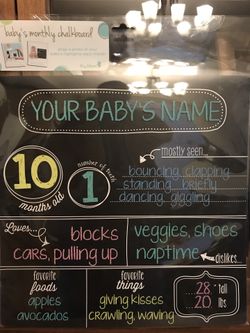 baby's monthly chalkboard
YOUR BABY'S NAME
mostly seen...
bouncing, clapping
standing briefly
dancing, giggling
10
months old
number of teeth
1
Loves...
blocks
cars, pulling up
veggies, shoes
naptime
dislikes...
favorite
foods
apples
avocados
favorite
things
giving kisses
crawling, waving
28" tall
20 lbs